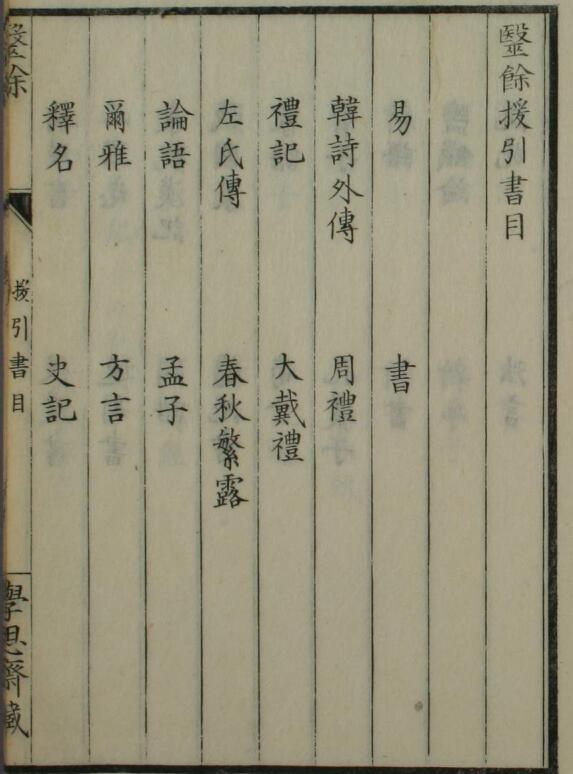 毉餘援引書目
易　書
韓詩外傳　周禮
禮記　大戴禮
左氏傳　春秋繁露
論語　孟子
爾雅　方言
釋名　史記
毉餘
援引書目
學思齋藏